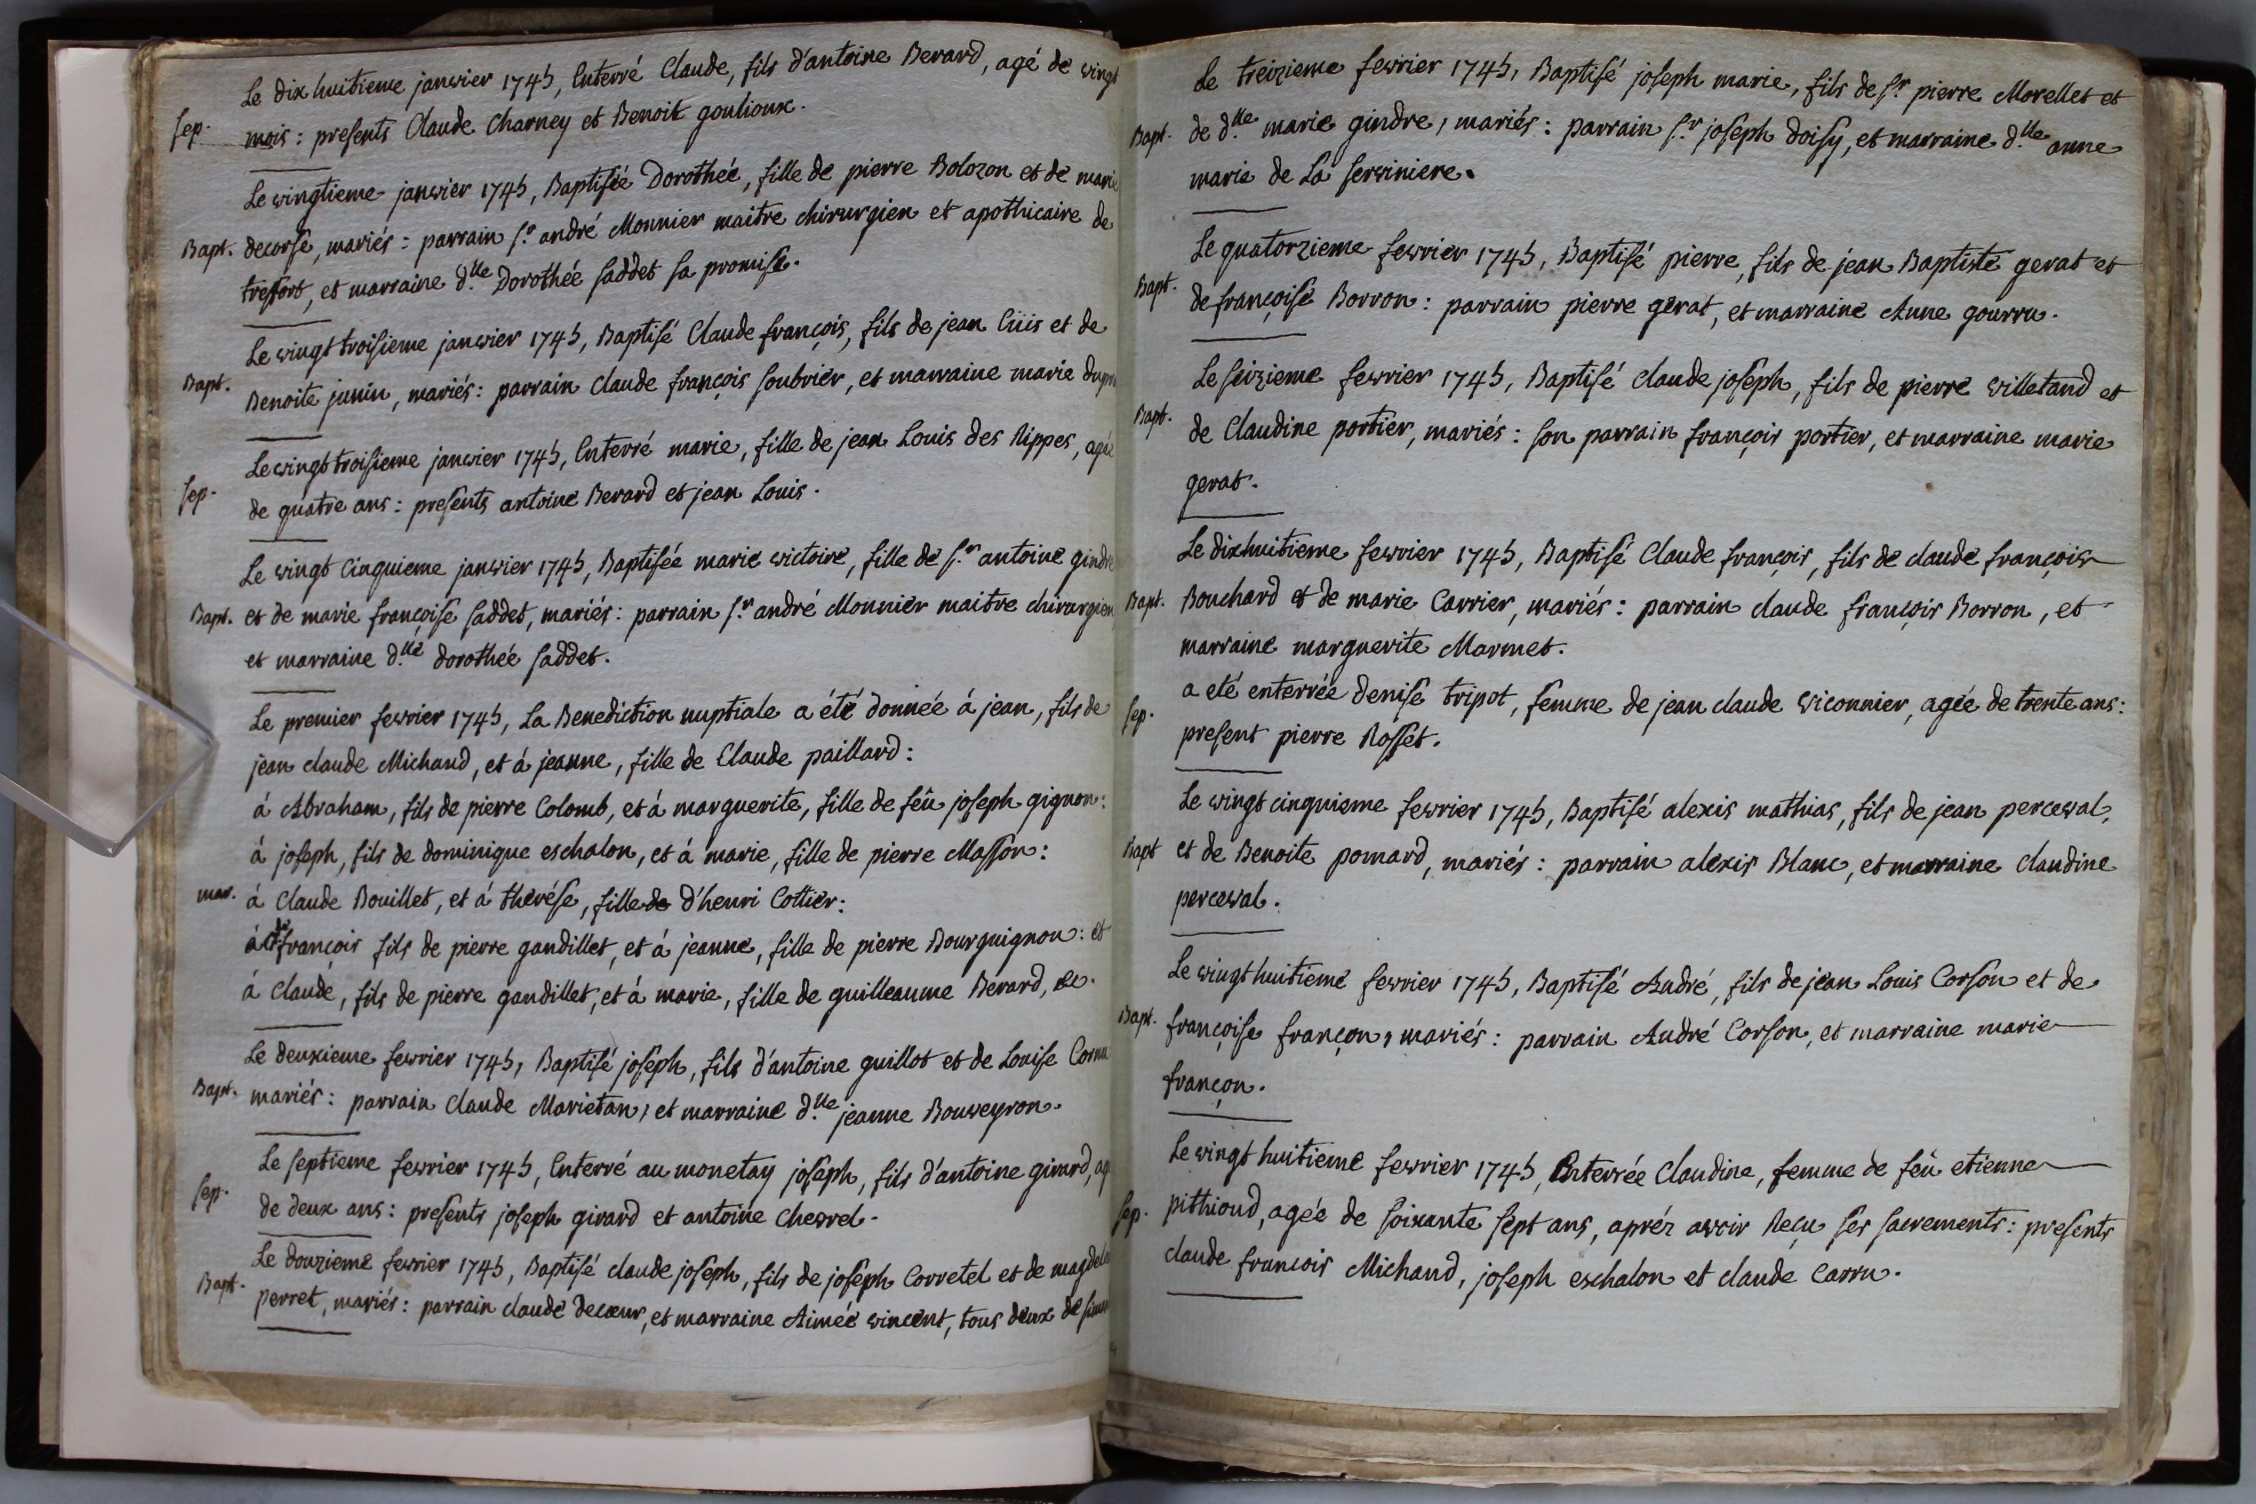 Le dix huitieme janvier 1745, Enterré Claude, fils d'antoine Berard, agé de vingt
sep. mois : presents Claude Charney et Benoit goulioux.
Le vingtieme janvier 1745, Baptisée Dorothée, fille de pierre Bolozon et de marie
Bapt. decorse, mariés : parrain s.r andré Monnier maitre chirurgien et apothicaire de
treffort, et marraine d.lle Dorothée saddet sa promise.
Le vingt troisieme janvier 1745, Baptisé Claude françois, fils de jean Cüis et de
Bapt. Benoite junin, mariés : parrain claude françois soubrier, et marraine marie
Le vingt troisieme janvier 1745, Enterré marie, fille de jean Louis des Rippes, agée
sep. de quatre ans : presents antoine Berard et jean Louis.
Le vingt cinquieme janvier 1745, Baptisée marie victoire, fille de s.r antoine gindre
Bapt. et de marie françoise saddet, mariés : parrain s.r andré Monnier maitre chirurgien
et marraine d.lle dorothée saddet.
Le premier fevrier 1745, La Benediction nuptiale a été donnée á jean, fils de
jean claude Michaud, et á jeanne, fille de Claude paillard :
á Abraham, fils de pierre Colomb, et á marguerite, fille de feû joseph gignon :
á joseph, fils de dominique eschalon, et á marie, fille de pierre Masson :
mar. á Claude Bouillet, et á thérése, fille de d'henri Cottier :
á françois fils de pierre gandillet, et á jeanne, fille de pierre Bourguignon : et
á claude, fils de pierre gandillet, et á marie, fille de guilleaume Berard, &c.
Le deuxieme fevrier 1745, Baptisé joseph, fils d'antoine guillot et de Louise
Bapt. mariés : parrain Claude Marietan, et marraine d.lle jeanne Bouveyron.
Le septieme fevrier 1745, Enterré au monetay joseph, fils d'antoine girard, agé
sep. de deux ans : presents joseph girard et antoine Chevrel.
Le douzieme fevrier 1745, Baptisé claude joseph, fils de joseph Corretel et de
Bapt. perret, mariés : parrain claude decœur, et marraine Aimée vincent, tous deux de
Le treizieme fevrier 1745, Baptisé joseph marie, fils de s.r pierre Morellet et
Bapt. de d.lle marie gindre, mariés : parrain s.r joseph doisy, et marraine d.lle anne
marie de La serviniere.
Le quatorzieme fevrier 1745, Baptisé pierre, fils de jean Baptiste gerat et
Bapt. de françoise Borron : parrain pierre gerat, et marraine Anne gourru.
Le seizieme fevrier 1745, Baptisé claude joseph, fils de pierre villetand et
Bapt. de Claudine portier, mariés : son parrain françois portier, et marraine marie
gerat.
Le dixhuitieme fevrier 1745, Baptisé Claude françois, fils de claude françois
Bapt. Bouchard et de marie Carrier, mariés : parrain claude françois Borron, et
marraine marguerite Marmet.
a eté enterrée denise tripot, femme de jean claude viconnier, agée de trente ans :
sep. present pierre Rosset.
Le vingt cinquieme fevrier 1745, Baptisé alexis mathias, fils de jean perceval,
Bapt et de Benoite pomard, mariés : parrain alexis Blanc, et marraine claudine
perceval.
Le vingt huitieme fevrier 1745, Baptisé André, fils de jean Louis Corson et de
Bapt. françoise françon, mariés : parrain André Corson, et marraine marie
françon.
Le vingt huitieme fevrier 1745, Enterrée Claudine, femme de feû etienne
sep. pithioud, agée de soixante sept ans, aprés avoir Reçu ses sacrements : presents
claude francois Michaud, joseph eschalon et claude Carru.